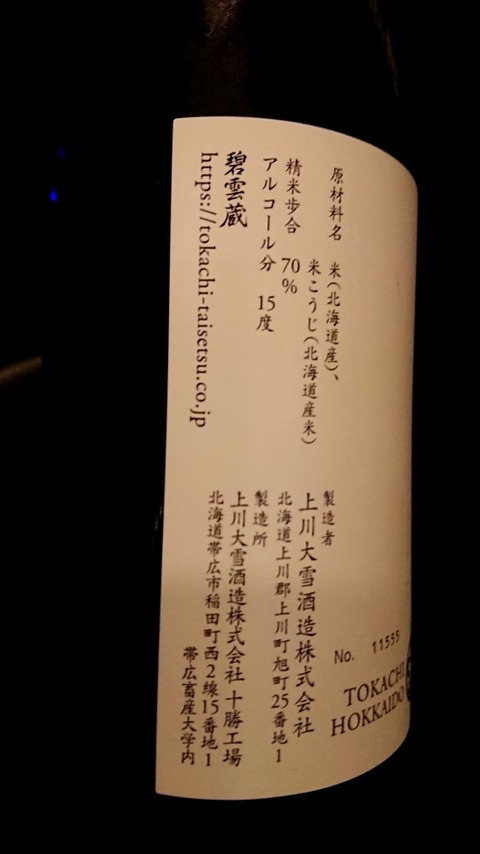 原材料名 米(北海道産)、
米こうじ(北海道産米)
精米歩合 70%
アルコール分 15度
碧雲蔵
https://tokachi-taisetsu.co.jp
製造者
上川大雪酒造株式会社
北海道上川郡上川町旭町25番地1
製造所
上川大雪酒造株式会社 十勝工場
北海道帯広市稲田町西2線15番地1
帯広畜産大学内
No. 11555
TOKACHI
HOKKAIDO